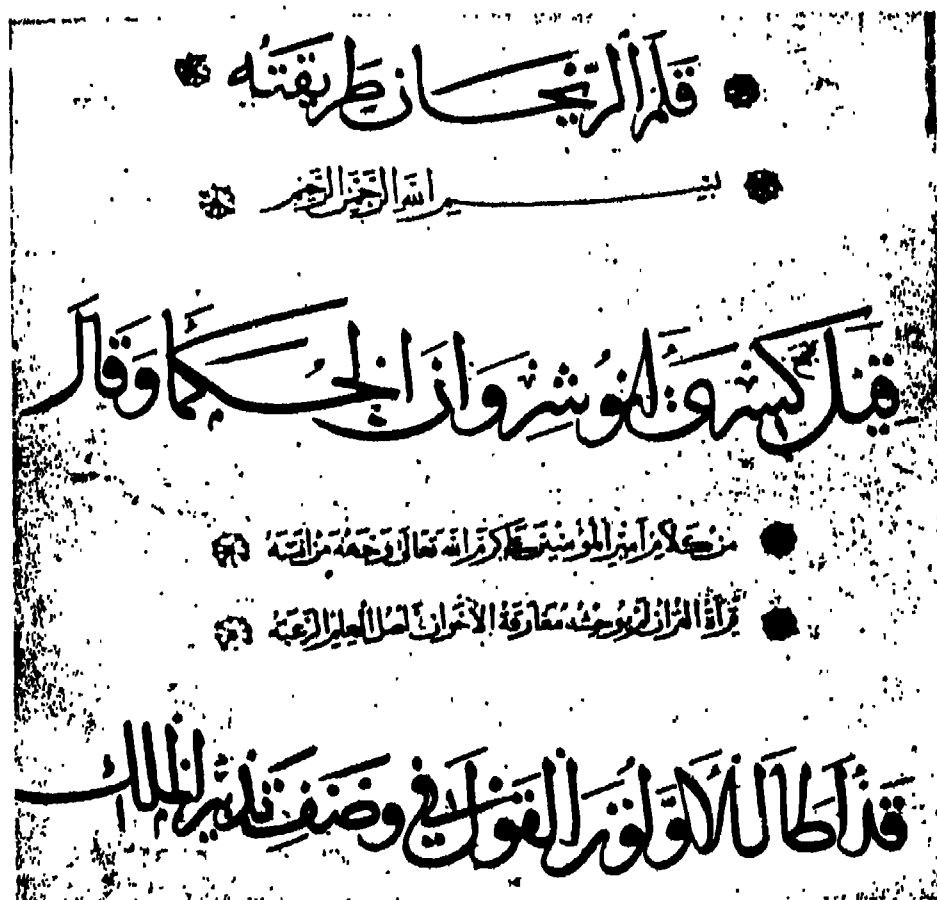 قلم الريحان طريقته
بسم الله الرحمن الرحيم
قيل كسرى أنوشروان الحكماء وقال
من كلام أمير المؤمنين علي كرم الله تعالى وجهه من انسته
قرآة القران لم توحشه مفارقة الاخوان
قد أطال الأولون القول في وصف تدبير الملك